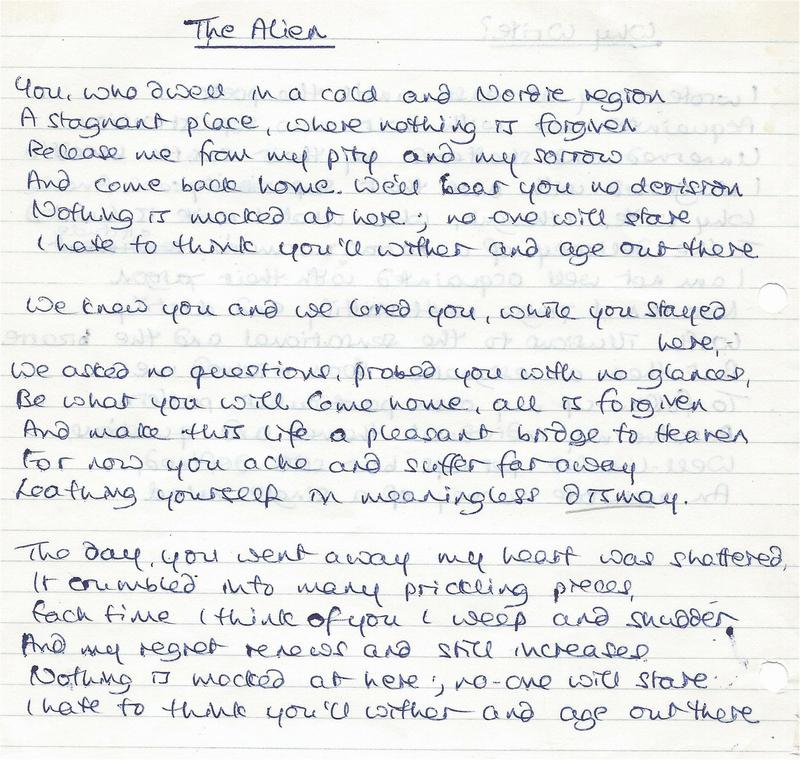 The Alien
You, who dwell in a cold and Nordic region
A stagnant place, where nothing is forgiven
Release me from my pity and my sorrow
And come back home. We'll bear you no derision
Nothing is mocked at here; no one will stare
I hate to think you'll wither and age out there
We knew you and we loved you, while you stayed
here,-
We asked no questions, probed you with no glances,
Be what you will. Come home, all is forgiven
And make this life a pleasant bridge to Heaven
For now you ache and suffer far away
Loathing yourself in meaningless dismay.
The day, you went away my heart was shattered,
It crumbled into many prickling pieces,
Each time I think of you I weep and shudder,
And my regret renews and still increases
Nothing is mocked at here; no-one will stare
I hate to think you'll wither and age out there